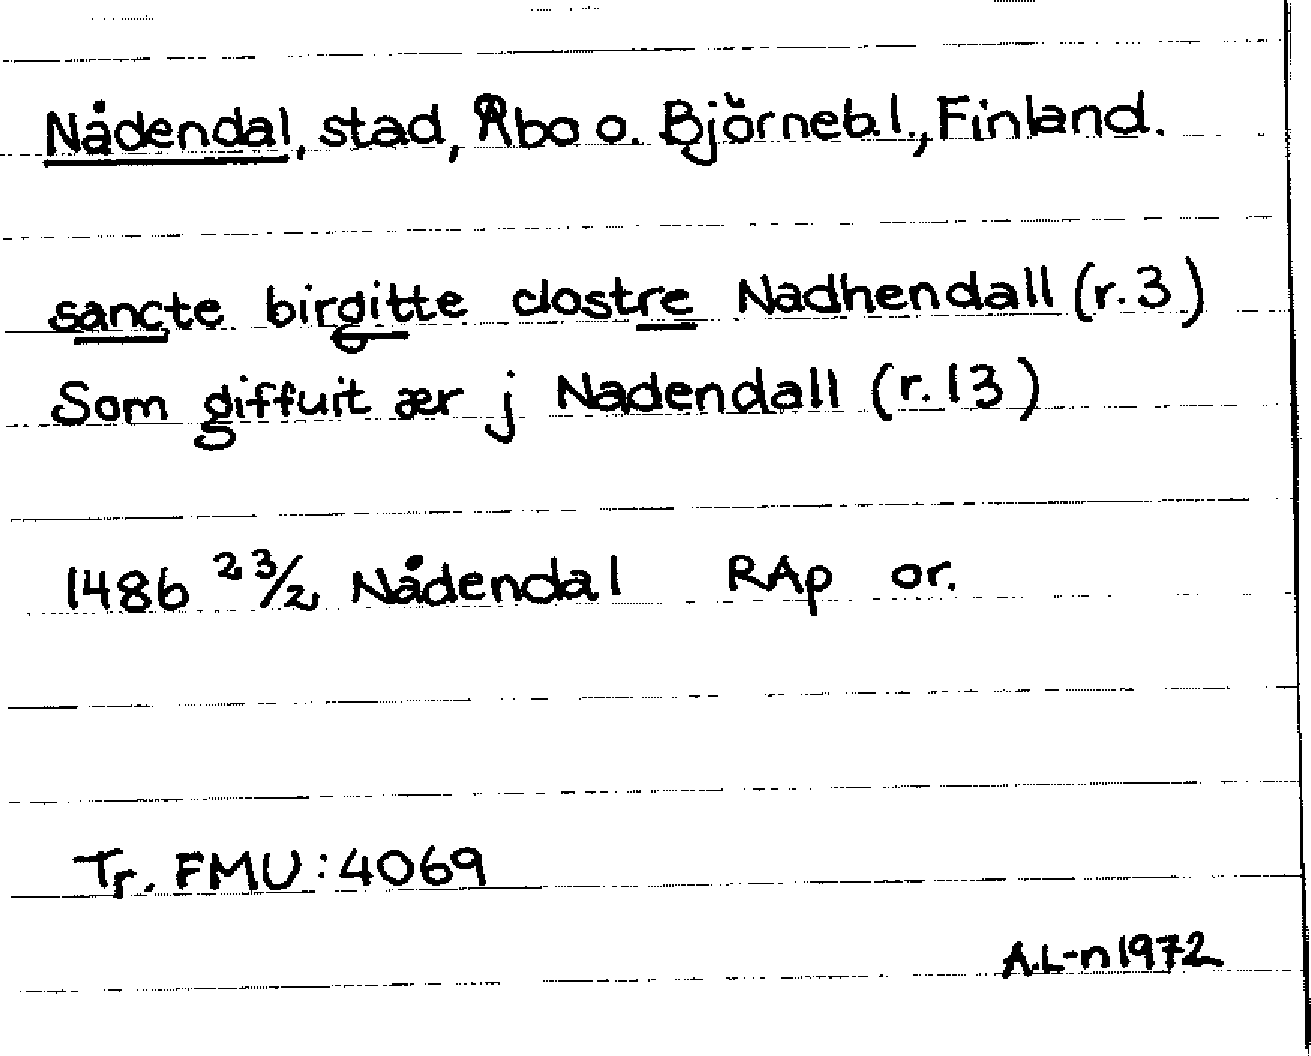 Nådendal, stad, Åbo o. Björneb.l., Finland.
sancte birgitte clostre Nadhendall (r.3)
Som giffuit ær j Nadendall (r.13)
1486 23/2 Nådendal RAp or.
Tr. FMU:4069
A.L-n 1972